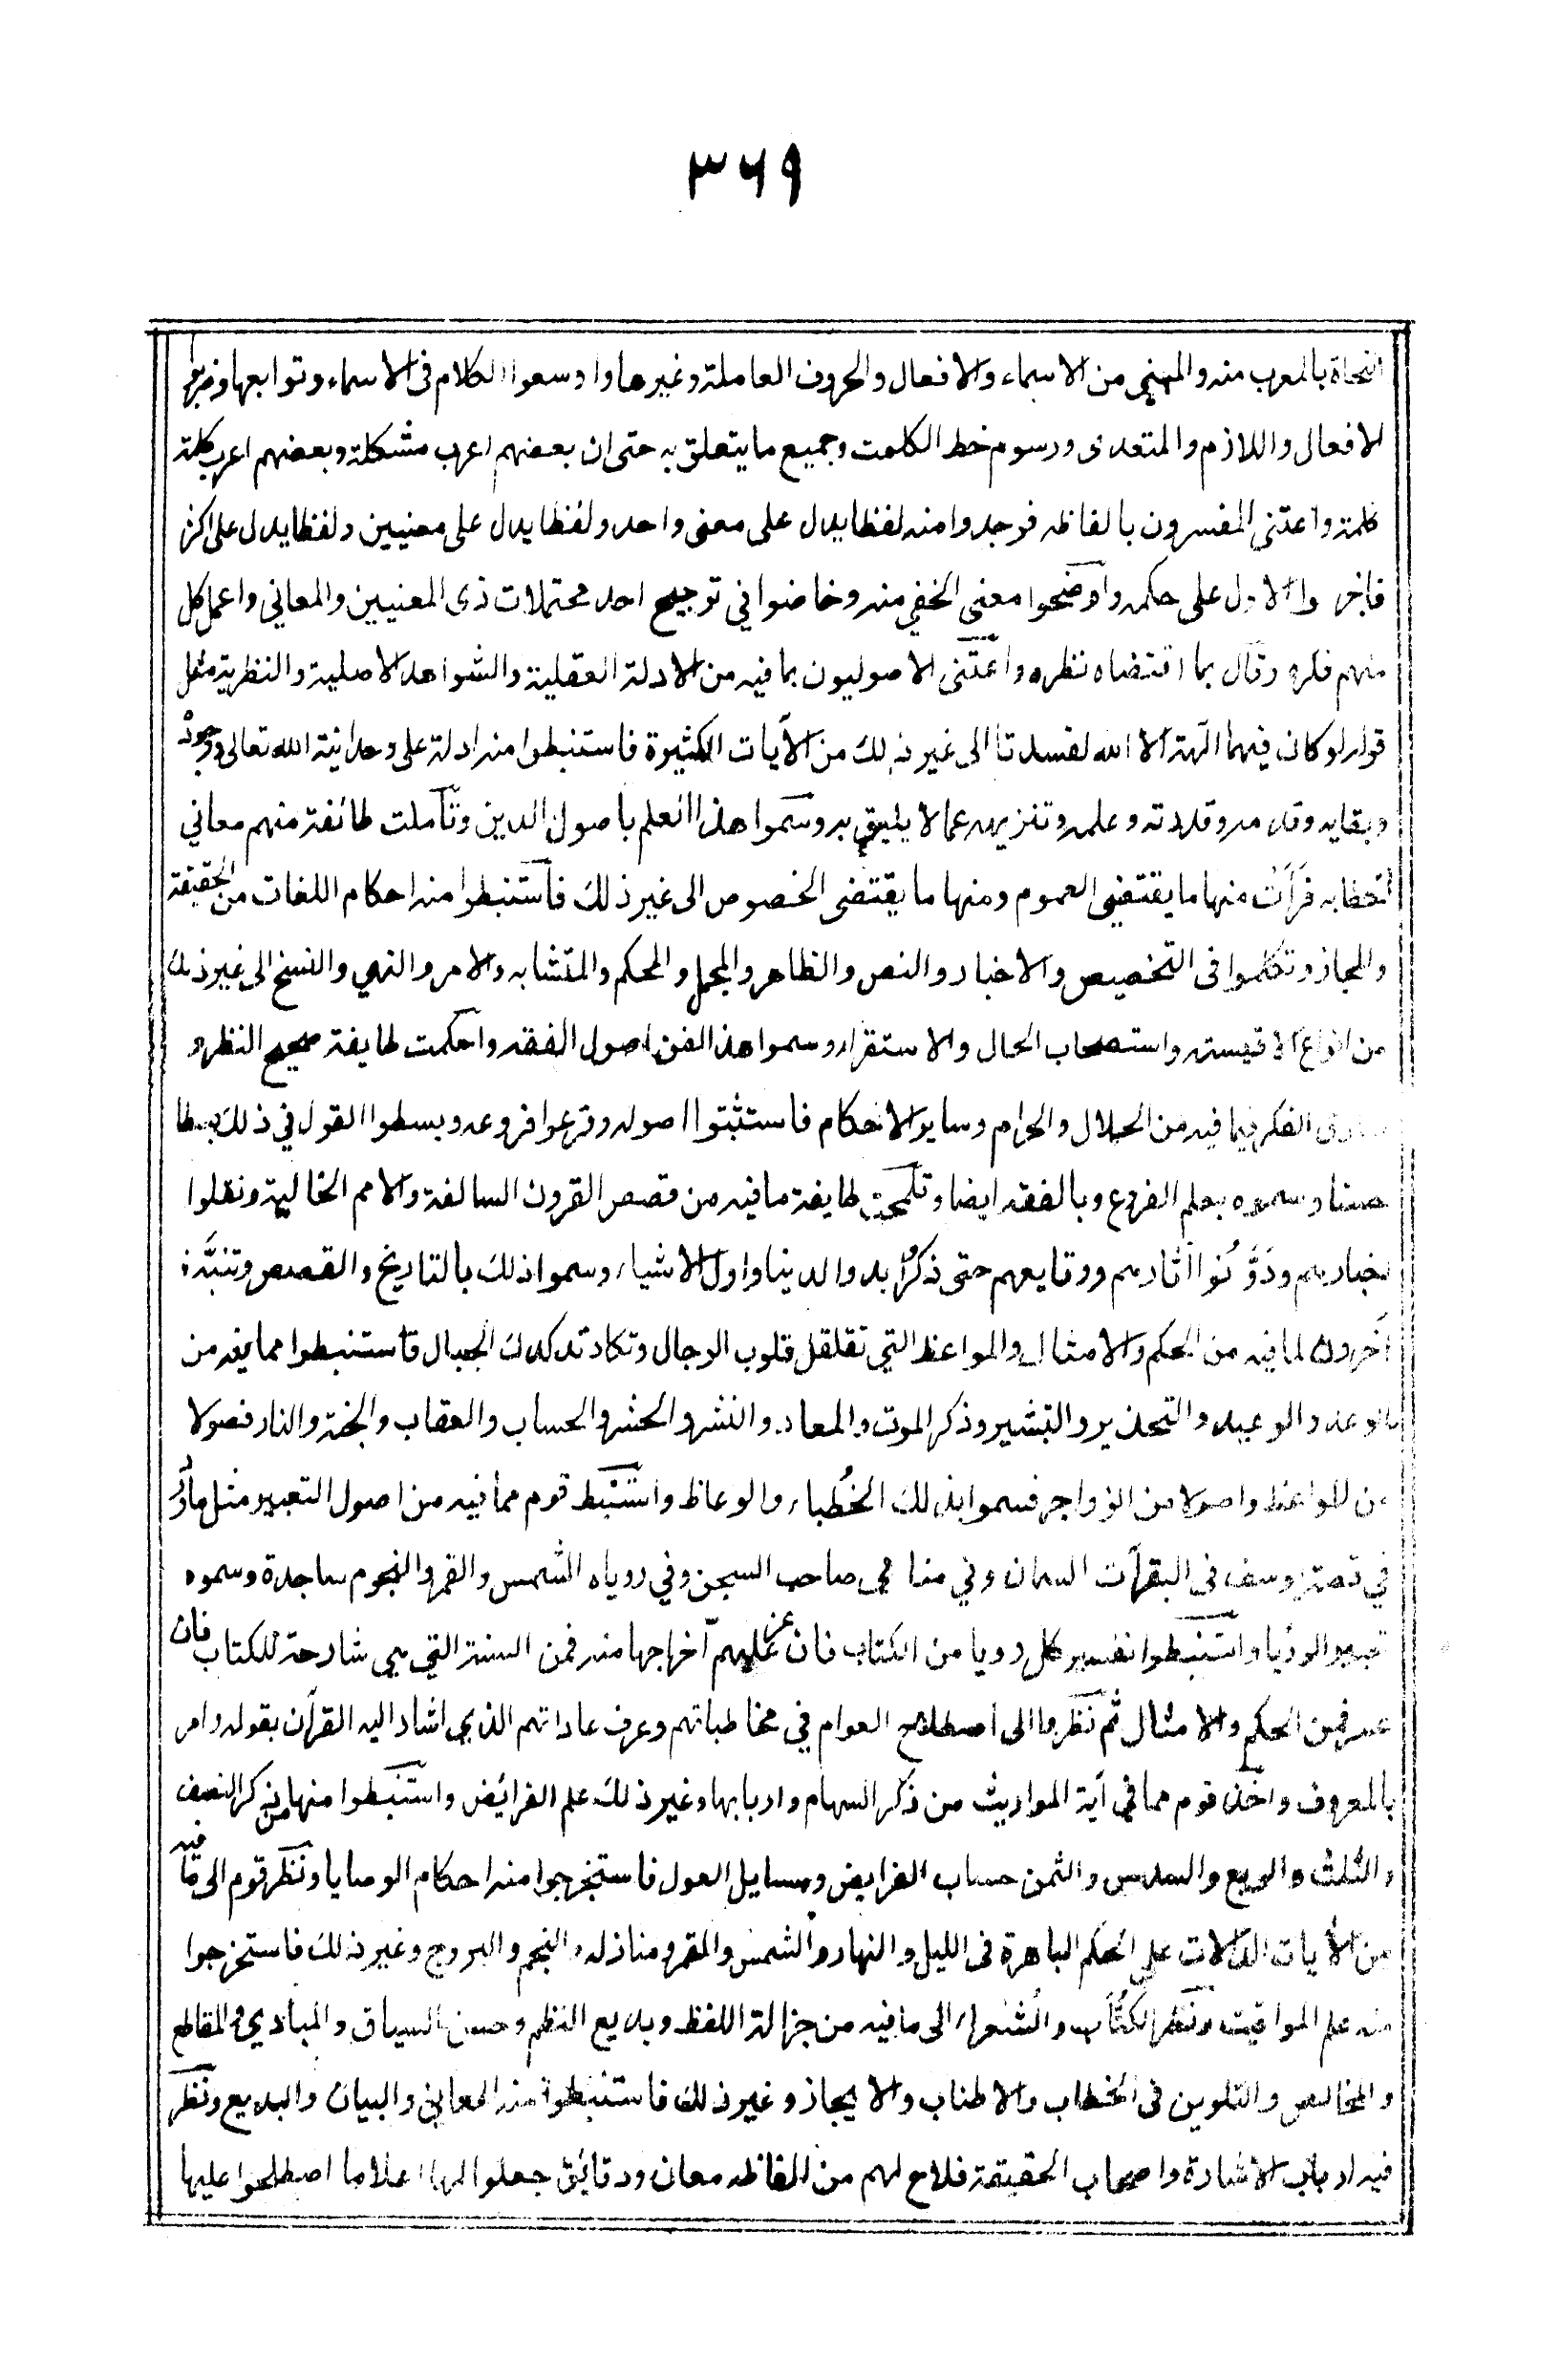 ٣٦٩
النحاة بالمعرب منه والمبني من الاسماء والافعال والحروف العاملة وغيرها واوسعوا الكلام فى الاسماء وتوابعها وضروب
الافعال واللازم والمتعدى ورسوم خط الكلمت وجميع ما يتعلق به حتى ان بعضهم اعرب مشكله وبعضهم اعربه كلمة
كلمة واعتنى المفسرون بالفاظه فوجدوا منه لفظا يدل على معنى واحد ولفظا يدل على معنيين ولفظا يدل على اكثر
فاجروا الاول على حكمه واوضحوا معنى الخفي منه وخاضوا في ترجيح احد محتملات ذى المعنيين والمعاني واعمل كل
منهم فكره وقال بما اقتضاه نظره واعتنى الاصوليون بما فيه من الادلة العقلية والشواهد الاصلية والنظرية مثل
قوله لو كان فيهما آلهة الا الله لفسدتا الى غير ذلك من الآيات الكثيرة فاستنبطوا منه ادلة على وحدانية الله تعالى ووجوده
وبقايه وقدمه وقدرته وعلمه وتنزيهه عما لا يليق به وسموا هذا العلم باصول الدين وتأملت طائفة منهم معاني
خطابه فرأت منها ما يقتضي العموم ومنها ما يقتضى الخصوص الى غير ذلك فاستنبطوا منه احكام اللغات من الحقيقة
والمجاز وتكلموا فى التخصيص والاخبار والنص والظاهر والمجمل والمحكم والمتشابه والامر والنهي والنسخ الى غير ذلك
من انواع الاقيسة واستصحاب الحال والاستقراء وسموا هذا الفن اصول الفقه واحكمت طايفة صحيح النظر و
صادق الفكر فيما فيه من الحلال والحرام وساير الاحكام فاستثبتوا اصوله وفرعوا فروعه وبسطوا القول في ذلك بسطا
حسنا وسموه بعلم الفروع وبالفقه ايضا وتلمحت طايفة ما فيه من قصص القرون السالفة والامم الخالية ونقلوا
اخبارهم ودَوَّنُوا آثارهم ووقايعهم حتى ذكروا بدو الدينا واول الاشياء وسموا ذلك بالتاريخ والقصص وتنبَّه
آخرون لما فيه من الحكم والامثال والمواعظ التي تقلقل قلوب الرجال وتكاد تدكدك الجبال فاستنبطوا مما فيه من
الوعد والوعيد والتحذير والتبشير وذكر الموت والمعاد والنشر والحشر والحساب والعقاب والجنة والنار فصولا
من المواعظ واصولا من الزواجر فسموا بذلك الخُطباء والوعاظ واستنبط قوم مما فيه من اصول التعبير مثل ما ورد
في قصة يوسف فى البقرات السمان وفي منامى صاحب السجن وفي روياه الشمس والقمر والنجوم ساجدة وسموه
تعبير الرؤيا واستنبطوا تفسير كل رويا من الكتاب فان عز عليهم اخراجها منه فمن السنة التي هي شارحة للكتاب فان
عسر فمن الحكم والامثال ثم نظروا الى اصطلاح العوام في مخاطباتهم وعرف عاداتهم الذي اشار اليه القرآن بقوله وامر
بالمعروف واخذ قوم مما في آية المواريث من ذكر السهام واربابها وغير ذلك علم الفرائض واستنبطوا منها من ذكر النصف
والثلث والربع والسدس والثمن حساب الفرايض ومسايل العول فاستخرجوا منه احكام الوصايا ونظر قوم الى ما فيه
من الأيات الدالات على الحكم الباهرة فى الليل والنهار والشمس والقمر ومنازله والنجم والبروج وغير ذلك فاستخرجوا
منه علم المواقيت ونظر الكتّاب والشعراء الى ما فيه من جزالة اللفظ وبديع النظم وحسن السياق والمبادي والمقاطع
والمخالص والتلوين فى الخطاب والاطناب والايجاز وغير ذلك فاستنبطوا منه المعاني والبيان والبديع ونظر
فيه ارباب الاشارة واصحاب الحقيقة فلاح لهم من الفاظه معان ودقائق جعلوا لها اعلاما اصطلحوا عليها